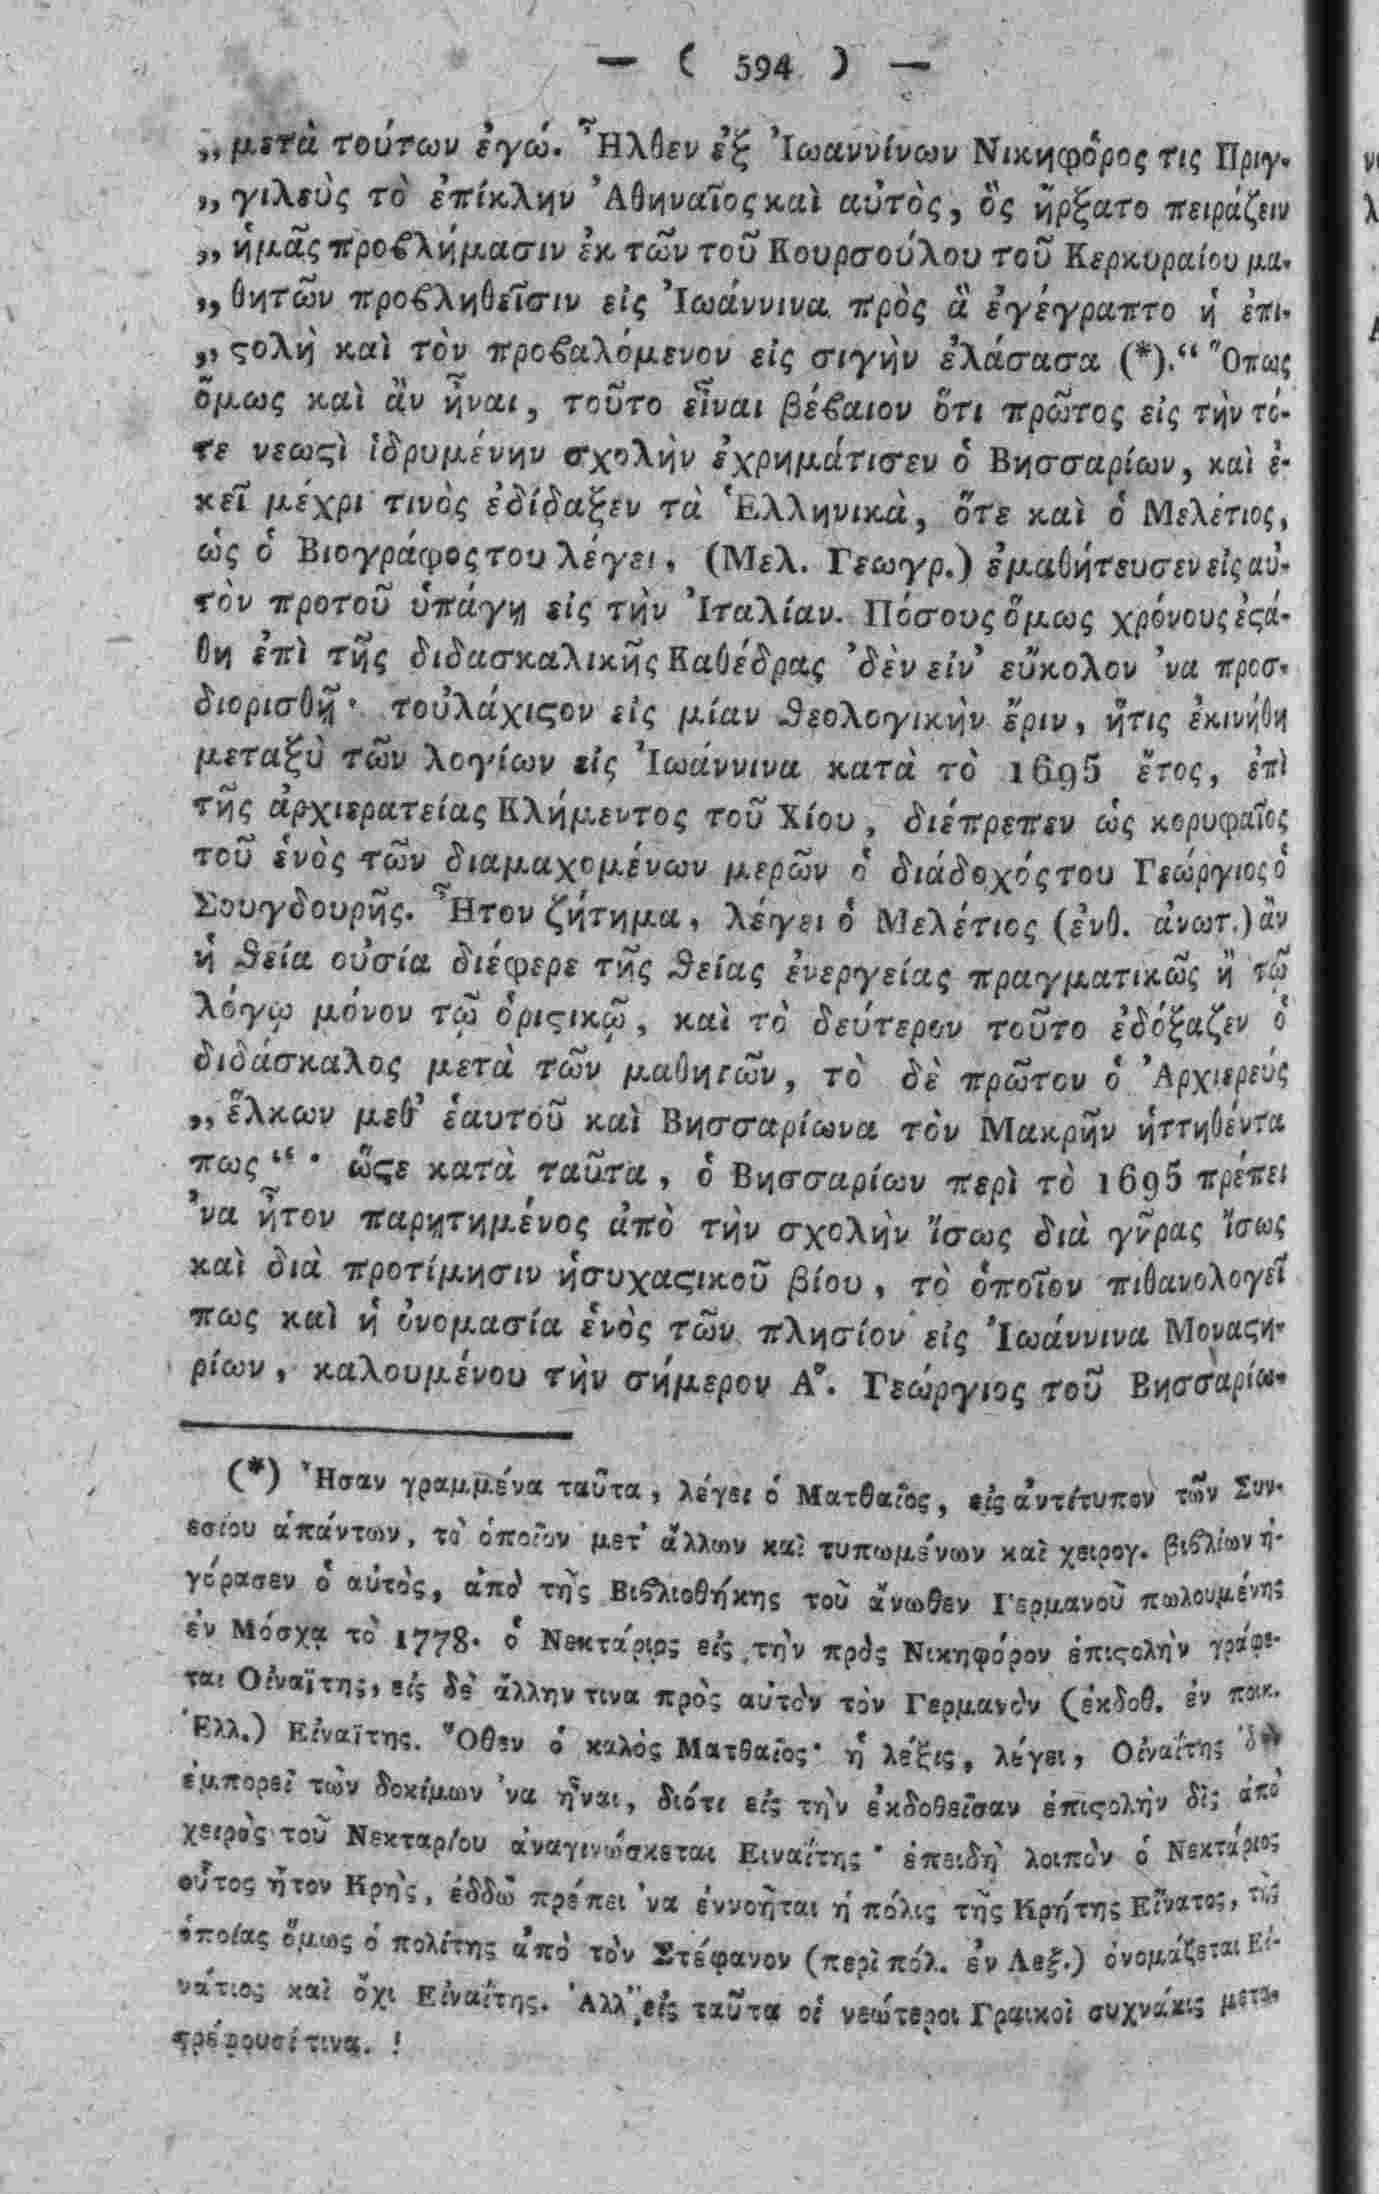 — ( 594 ) —
„ μετὰ τούτων ἐγώ. Ἦλθεν ἐξ Ἰωαννίνων Νικηφόρος τις Πριγ-
„ γιλεὺς τὸ ἐπίκλην Ἀθηναῖος καὶ αὐτὸς, ὃς ἤρξατο πειράζειν
„ ἡμᾶς προϐλήμασιν ἐκ τῶν τοῦ Κουρσούλου τοῦ Κερκυραίου μα-
„ θητῶν προϐληθεῖσιν εἰς Ἰωάννινα πρὸς ἃ ἐγέγραπτο ἡ ἐπι-
„ ϛολὴ καὶ τὸν προϐαλόμενον εἰς σιγὴν ἐλάσασα (*).“ Ὅπως
ὅμως καὶ ἂν ἦναι, τοῦτο εἶναι βέϐαιον ὅτι πρῶτος εἰς τὴν τό-
τε νεωϛὶ ἱδρυμένην σχολὴν ἐχρημάτισεν ὁ Βησσαρίων, καὶ ἐ-
κεῖ μέχρι τινὸς ἐδίδαξεν τὰ Ἑλληνικὰ, ὅτε καὶ ὁ Μελέτιος,
ὡς ὁ Βιογράφος του λέγει, (Μελ. Γεωγρ.) ἐμαθήτευσεν εἰς αὐ-
τὸν προτοῦ ὑπάγῃ εἰς τὴν Ἰταλίαν. Πόσους ὅμως χρόνους ἐϛά-
θη ἐπὶ τῆς διδασκαλικῆς Καθέδρας ’δὲν εἶν’ εὔκολον ’να προσ-
διορισθῇ· τοὐλάχιϛον εἰς μίαν ϑεολογικὴν ἔριν, ἥτις ἐκινήθη
μεταξὺ τῶν λογίων εἰς Ἰωάννινα κατὰ τὸ 1695 ἔτος, ἐπὶ
τῆς ἀρχιερατείας Κλήμεντος τοῦ Χίου, διέπρεπεν ὡς κορυφαῖος
τοῦ ἑνὸς τῶν διαμαχομένων μερῶν ὁ διάδοχός του Γεώργιος ὁ
Σουγδουρῆς. Ἦτον ζήτημα, λέγει ὁ Μελέτιος (ἐνθ. ἀνωτ.) ἂν
ἡ ϑεία οὐσία διέφερε τῆς ϑείας ἐνεργείας πραγματικῶς ἢ τῷ
λόγῳ μόνον τῷ ὁριϛικῷ, καὶ τὸ δεύτερον τοῦτο ἐδόξαζεν ὁ
διδάσκαλος μετὰ τῶν μαθητῶν, τὸ δὲ πρῶτον ὁ Ἀρχιερεύς
„ ἕλκων μεθ’ ἑαυτοῦ καὶ Βησσαρίωνα τὸν Μακρῆν ἡττηθέντα
πως“ · ὥϛε κατὰ ταῦτα, ὁ Βησσαρίων περὶ τὸ 1695 πρέπει
’να ἦτον παρῃτημένος ἀπὸ τὴν σχολὴν ἴσως διὰ γῆρας ἴσως
καὶ διὰ προτίμησιν ἡσυχαϛικοῦ βίου, τὸ ὁποῖον πιθανολογεῖ
πως καὶ ἡ ὀνομασία ἑνὸς τῶν πλησίον εἰς Ἰωάννινα Μοναϛη-
ρίων, καλουμένου τὴν σήμερον Αº. Γεώργιος τοῦ Βησσαρίω-
(*) Ἦσαν γραμμένα ταῦτα, λέγει ὁ Ματθαῖος, εἰς ἀντίτυπον τῶν Συν-
εσίου ἁπάντων, τὸ ὁποῖον μετ’ ἄλλων καὶ τυπωμένων καὶ χειρογ. βιϐλίων ἠ-
γόρασεν ὁ αὐτὸς, ἀπὸ τῆς Βιϐλιοθήκης τοῦ ἄνωθεν Γερμανοῦ πωλουμένης
ἐν Μόσχᾳ τὸ 1778. ὁ Νεκτάριος εἰς τὴν πρὸς Νικηφόρον ἐπιϛολὴν γράφε-
ται Οἰναΐτης, εἰς δὲ ἄλλην τινα πρὸς αὐτὸν τὸν Γερμανὸν (ἐκδοθ. ἐν ποικ.
Ἑλλ.) Εἰναΐτης. Ὅθεν ὁ καλὸς Ματθαῖος· ἡ λέξις, λέγει, Οἰναΐτης ’δὲν
ἐμπορεῖ τῶν δοκίμων ’να ἦναι, διότι εἰς τὴν ἐκδοθεῖσαν ἐπιϛολὴν δὶς ἀπὸ
χειρὸς τοῦ Νεκταρίου ἀναγινώσκεται Ειναΐτης · ἐπειδὴ λοιπὸν ὁ Νεκτάριος
οὗτος ἦτον Κρὴς, ἐδδῶ πρέπει ’να ἐννοῆται ἡ πόλις τῆς Κρήτης Εἴνατος, τῆς
ὁποίας ὅμως ὁ πολίτης ἀπὸ τὸν Στέφανον (περὶ πόλ. ἐν Λεξ.) ὀνομάζεται Εἰ-
νάτιος καὶ ὄχι Εἰναΐτης. Ἀλλ’ εἰς ταῦτα οἱ νεώτεροι Γραικοὶ συχνάκις μετα-
τρέπουσί τινα. !